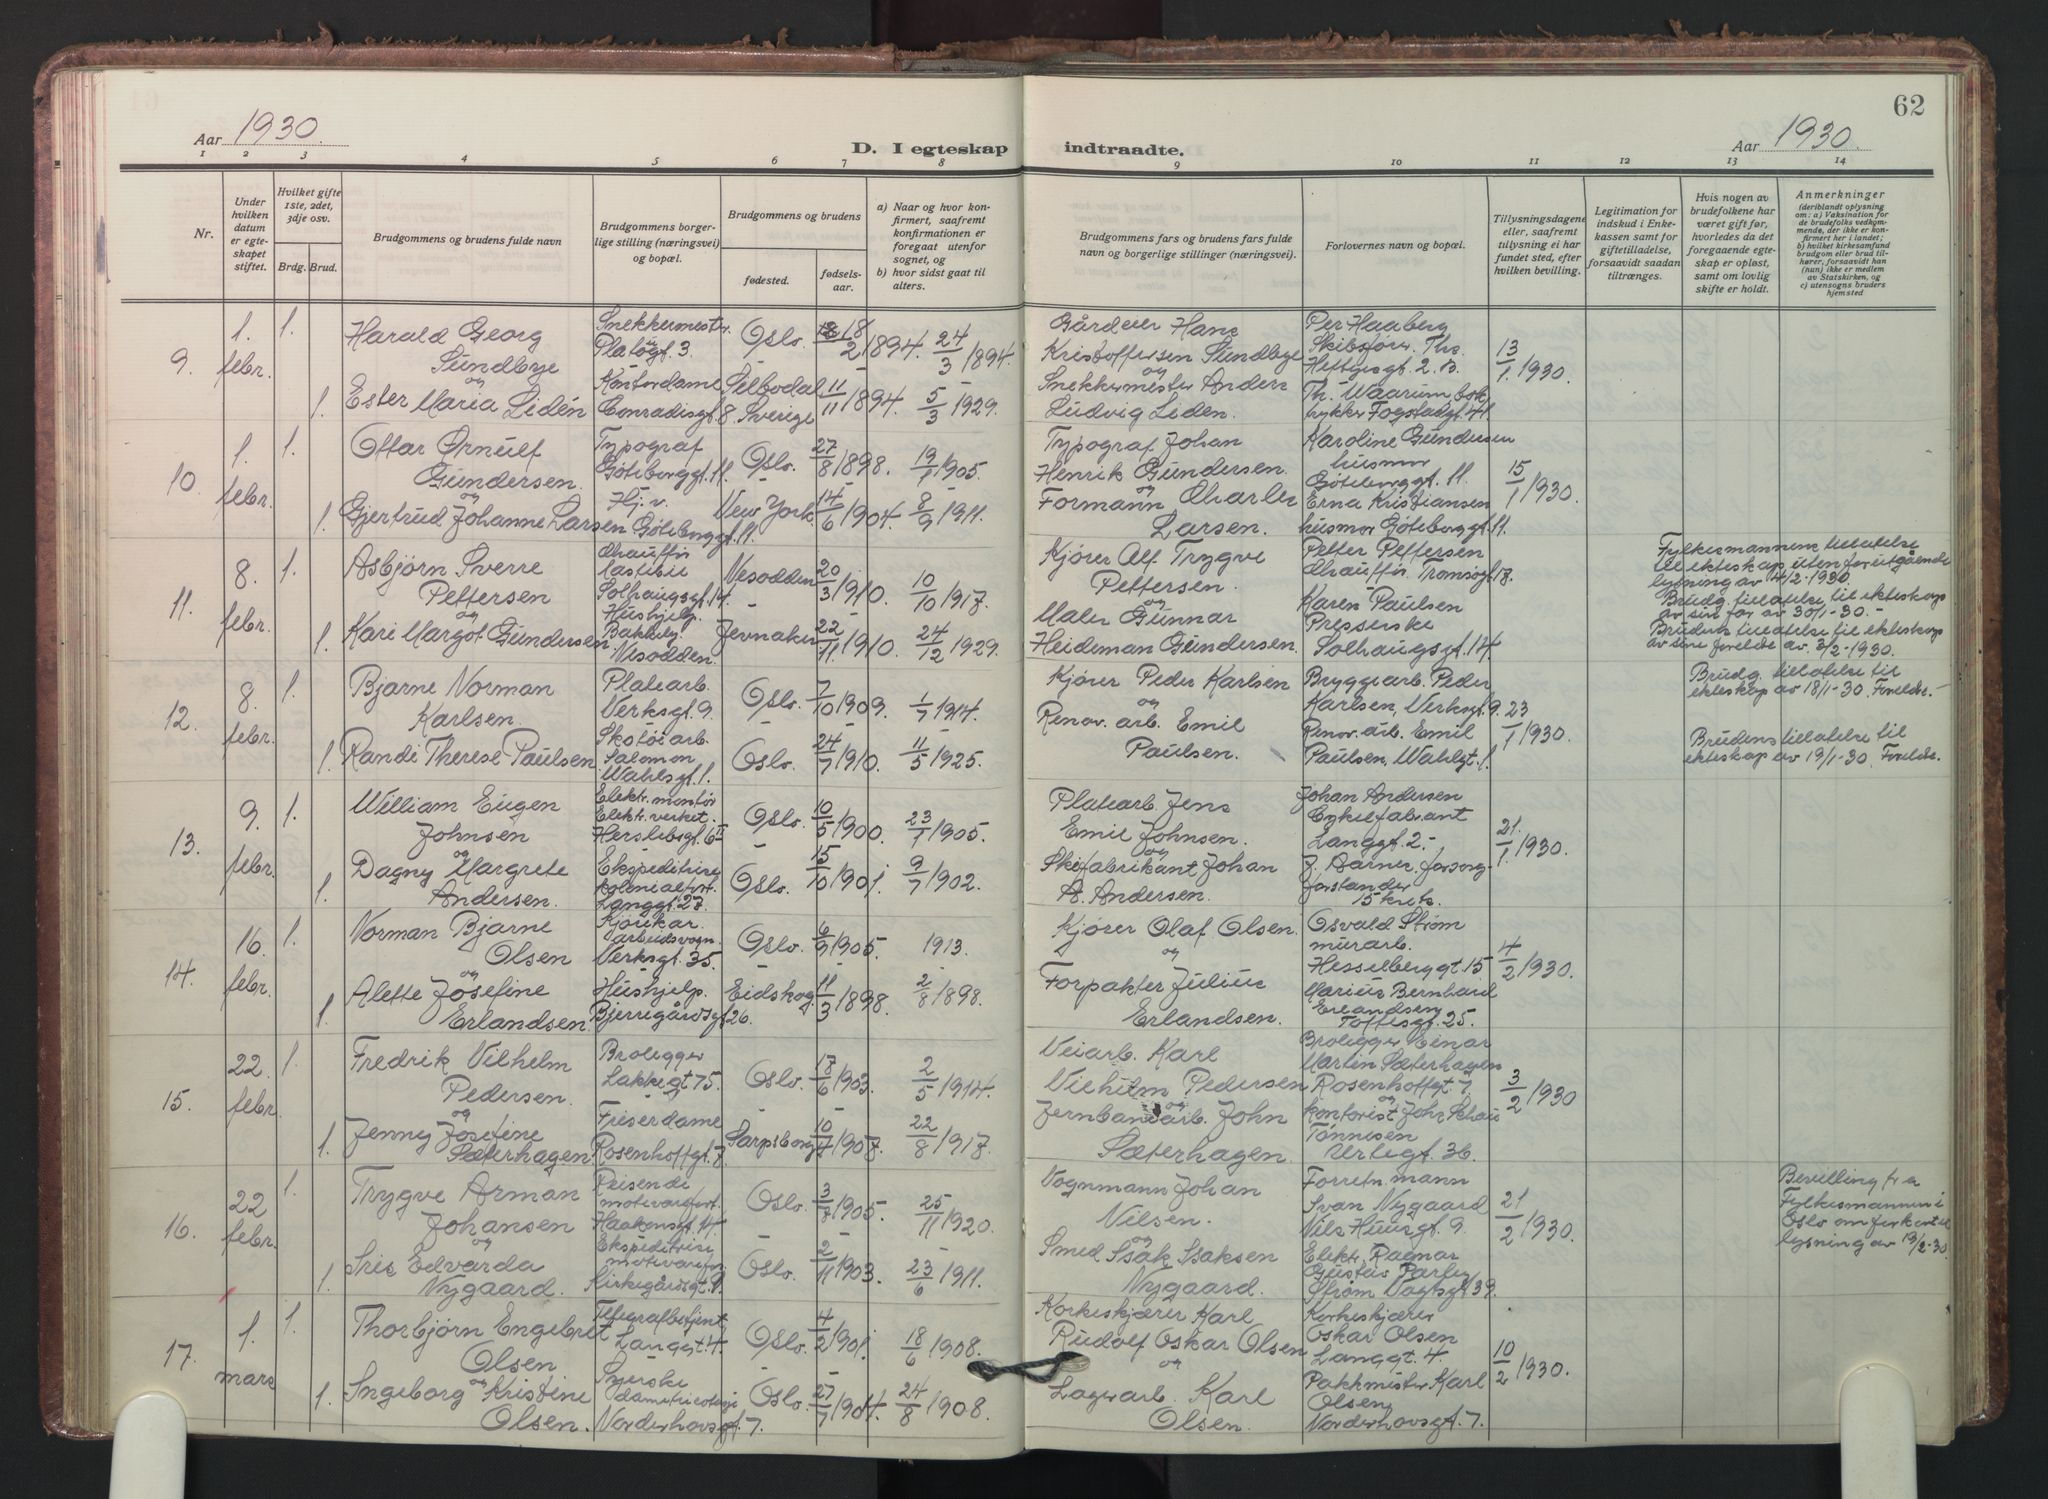 62
Aar 1930.
D. I egteskap indtraadte.
Aar 1930.
1 2 3 4 5 6 7 8 9 10 11 12 13 14
Nr.
Under hvilken datum er egteskapet stiftet.
Hvilket gifte 1ste, 2det, 3dje osv.
Brdg. Brud.
Brudgommens og brudens fulde navn
Brudgommens borgerlige stilling (næringsvei) og bopæl.
Brudgommens og brudens
fødested.
fødselsaar.
a) Naar og hvor konfirmert, saafremt konfirmationen er foregaat utenfor sognet, og
b) hvor sidst gaat til alters.
Brudgommens fars og brudens fars fulde navn og borgerlige stillinger (næringsvei).
Forlovernes navn og bopæl.
Tillysningsdagene eller, saafremt tillysning ei har fundet sted, efter hvilken bevilling.
Legitimation for indskud i Enkekassen samt for giftetilladelse, forsaavidt saadan tiltrænges.
Hvis nogen av brudefolkene har været gift før, hvorledes da det foregaaende egteskap er opløst, samt om lovlig skifte er holdt.
Anmerkninger
(deriblandt oplysning om: a) Vaksination for de brudefolks vedkommende, der ikke er konfirmert her i landet; b) hvilket kirkesamfund brudgom eller brud tilhører, forsaavidt han (hun) ikke er medlem av Statskirken, og c) utensogns bruders hjemsted
9. 1. febr. 1.
Harald Georg Sundbye
Snekkermester. Platøgt. 3.
Oslo. 18/2 1894. 24/3 1894.
Gårdeier Hans Kristoffersen Sundbye
Per Haaberg Skibsfører. Ths. Heftyesgt. 2. B.
13/1 1930.
og
1. Ester Maria Lidén
Kontordame Conradisgt. 8.
Silbodal Sverige 11/11 1894. 5/3 1929.
Snekkermester Anders Ludvig Liden.
Th. Waarum boktrykker Fogstadgt. 41.
10. 1. febr. 1.
Ottar Ørnulf Gundersen.
Typograf Gøteborggt. 11.
Oslo. 27/8 1898. 19/1 1905.
Typograf Johan Henrik Gundersen.
Karoline Gundersen husmor Gøteborggt. 11.
15/1 1930.
og
1. Gjertrud Johanne Larsen
Hj. v. Gøteborggt. 11.
New York. 14/6 1904. 8/9 1911.
Formann Charles Larsen.
Erna Kristiansen husmor Gøteborggt. 11.
11. 8. febr. 1.
Asbjørn Sverre Pettersen
Chauffør lastebil Solhaugsgt. 14.
Nesodden 20/3 1910. 10/10 1917.
Kjører Alf Trygve Pettersen.
Petter Pettersen Chauffør. Tromsøgt. 18.
Fylkesmannens tillatelse til ekteskap uten forutgående lysning av 4/2-1930.
Brudg. tillatelse til ekteskap av sin far av 30/1-30.-
og
1. Kari Margot Gundersen
Hushjelp. Bakkely. Nesodden.
Jevnaker 22/11 1910. 24/12 1929.
Maler Gunnar Heideman Gundersen.
Karen Paulsen Presserske Solhaugsgt. 14.
Brudens tillatelse til ekteskap av sine foreldre av. 3/2-1930.
12. 8. febr. 1.
Bjarne Norman Karlsen.
Platearb. Verksgt. 9.
Oslo. 7/10 1909. 1/7 1914.
Kjører Peder Karlsen
Bryggearb. Peder Karlsen, Verksgt. 9.
23/1 1930.
Brudg. tillatelse til ekteskap av 18/1-30. Foreldre.-
og
1. Randi Therese Paulsen
Skotøiarb. Salomon Wahlsgt. 1.
Oslo. 24/7 1910. 11/5 1925.
Renov. arb. Emil Paulsen.
Renov. arb. Emil Paulsen, Wahlgt. 1.
Brudens tillatelse til ekteskap av 19/1-30. Foreldre.
13. 9. febr. 1.
William Eugen Johnsen
Elektr. montør Elektr. verket. Herslebsgt. 6 II
Oslo. 10/5 1900. 23/1 1905.
Platearb. Jens Emil Johnsen.
Johan Andersen Cykelfabrikant Langgt. 2.-
21/1 1930.
og
1. Dagny Margrete Andersen.
Ekspeditrise kolonialforr. Langgt. 27.
Oslo. 15/10 1901. 9/7 1902.
Skofabrikant Johan A. Andersen.
J. Aarner. forsorgforstander 15 krets.
14. 16. febr. 1.
Norman Bjarne Olsen
Kjørekar. arbeidsvogn. Verksgt. 35.
Oslo. 6/9 1905. 1913.
Kjører Olaf Olsen.
Osvald Strøm murarb. Hesselberggt. 15
4/2 1930.
og
1. Alette Josefine Erlandsen.
Hushjelp. Bjerregårdsgt. 26.
Eidskog 11/3 1898. 2/8 1898.
Forpakter Julius Erlandsen.
Marius Bernhard Erlandsen Toftesgt. 25.
15. 22. febr. 1.
Fredrik Vilhelm Pedersen.
Brolegger Lakkegt. 75.
Oslo. 17/6 1903. 2/5 1914.
Veiarb. Karl Vilhelm Pedersen
Brolegger Einar Martin Sæterhagen Rosenhoffgt. 7.
3/2 1930
og
1. Jenny Josefine Sæterhagen.
Friserdame Rosenhoffgt. 7.
Sarpsborg 10/4 1907. 22/8 1917.
Jernbanearb. John Sæterhagen.
og kontorist John Tønnesen Urtegt. 36.
16. 22 febr. 1.
Trygve Arman Johansen
Reisende motevareforr. Haakonsgt. 14.
Oslo. 3/8 1905. 25/11 1920.
Vognmann Johan Nilsen.
Forretn. mann Ivan Nygaard Nils Huusgt. 9.
21/2 1930.
Bevilling fra Fylkesmannen i Oslo om forkortet lysning av 19/2-30.
og
1. Iris Edvarda Nygaard.
Ekspeditrise motevareforr. Kirkegårdsgt. 9.
Oslo. 2/11 1903. 23/6 1911.
Smed Isak Isaksen Nygaard.
Elektr. Ragnar Gustav Strøm Vogtsgt. 39.
17. 1. mars 1.
Thorbjørn Engebret Olsen
Telegrafbetjent Langgt. 4.
Oslo. 4/2 1901. 18/6 1908.
Korkeskjærer Karl Rudolf Oskar Olsen
Korkeskjærer Oskar Olsen Langgt. 4.
10/2 1930.
og
1. Ingeborg Kristine Olsen.
Syerske Norderhovsgt. 7.
Oslo. 27/7 1904. 24/8 1908.
Lagerarb. Karl Olsen.
Pakkmister Karl Olsen Norderhovsgt. 7.